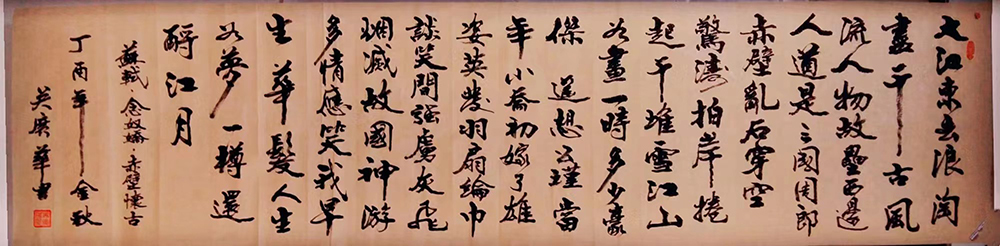 大江東去浪淘
盡千古風
流人物故壘西邊
人道是三國周郎
赤壁亂石穿空
驚濤拍岸捲
起千堆雪江山
如畫一時多少豪
傑遥想公瑾當
年小喬初嫁了雄
姿英發羽扇綸巾
談笑間强虜灰飛
烟滅故國神游
多情應笑我早
生華髮人生
如夢一樽還
酹江月
蘇軾·念奴嬌·赤壁懷古
丁酉年金秋
吴廣華書